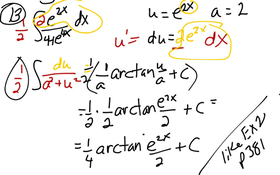 (13) 1/2 ∫ 2e^{2x} dx / 4+e^{4x}
u = e^{2x}   a = 2
u' = du = 2e^{2x} dx
(1/2) ∫ du / a² + u² = 1/2 (1/a arctan u/a + C)
= 1/2 · 1/2 arctan e^{2x}/2 + C =
= 1/4 arctan e^{2x}/2 + C
like EX 2
p 381